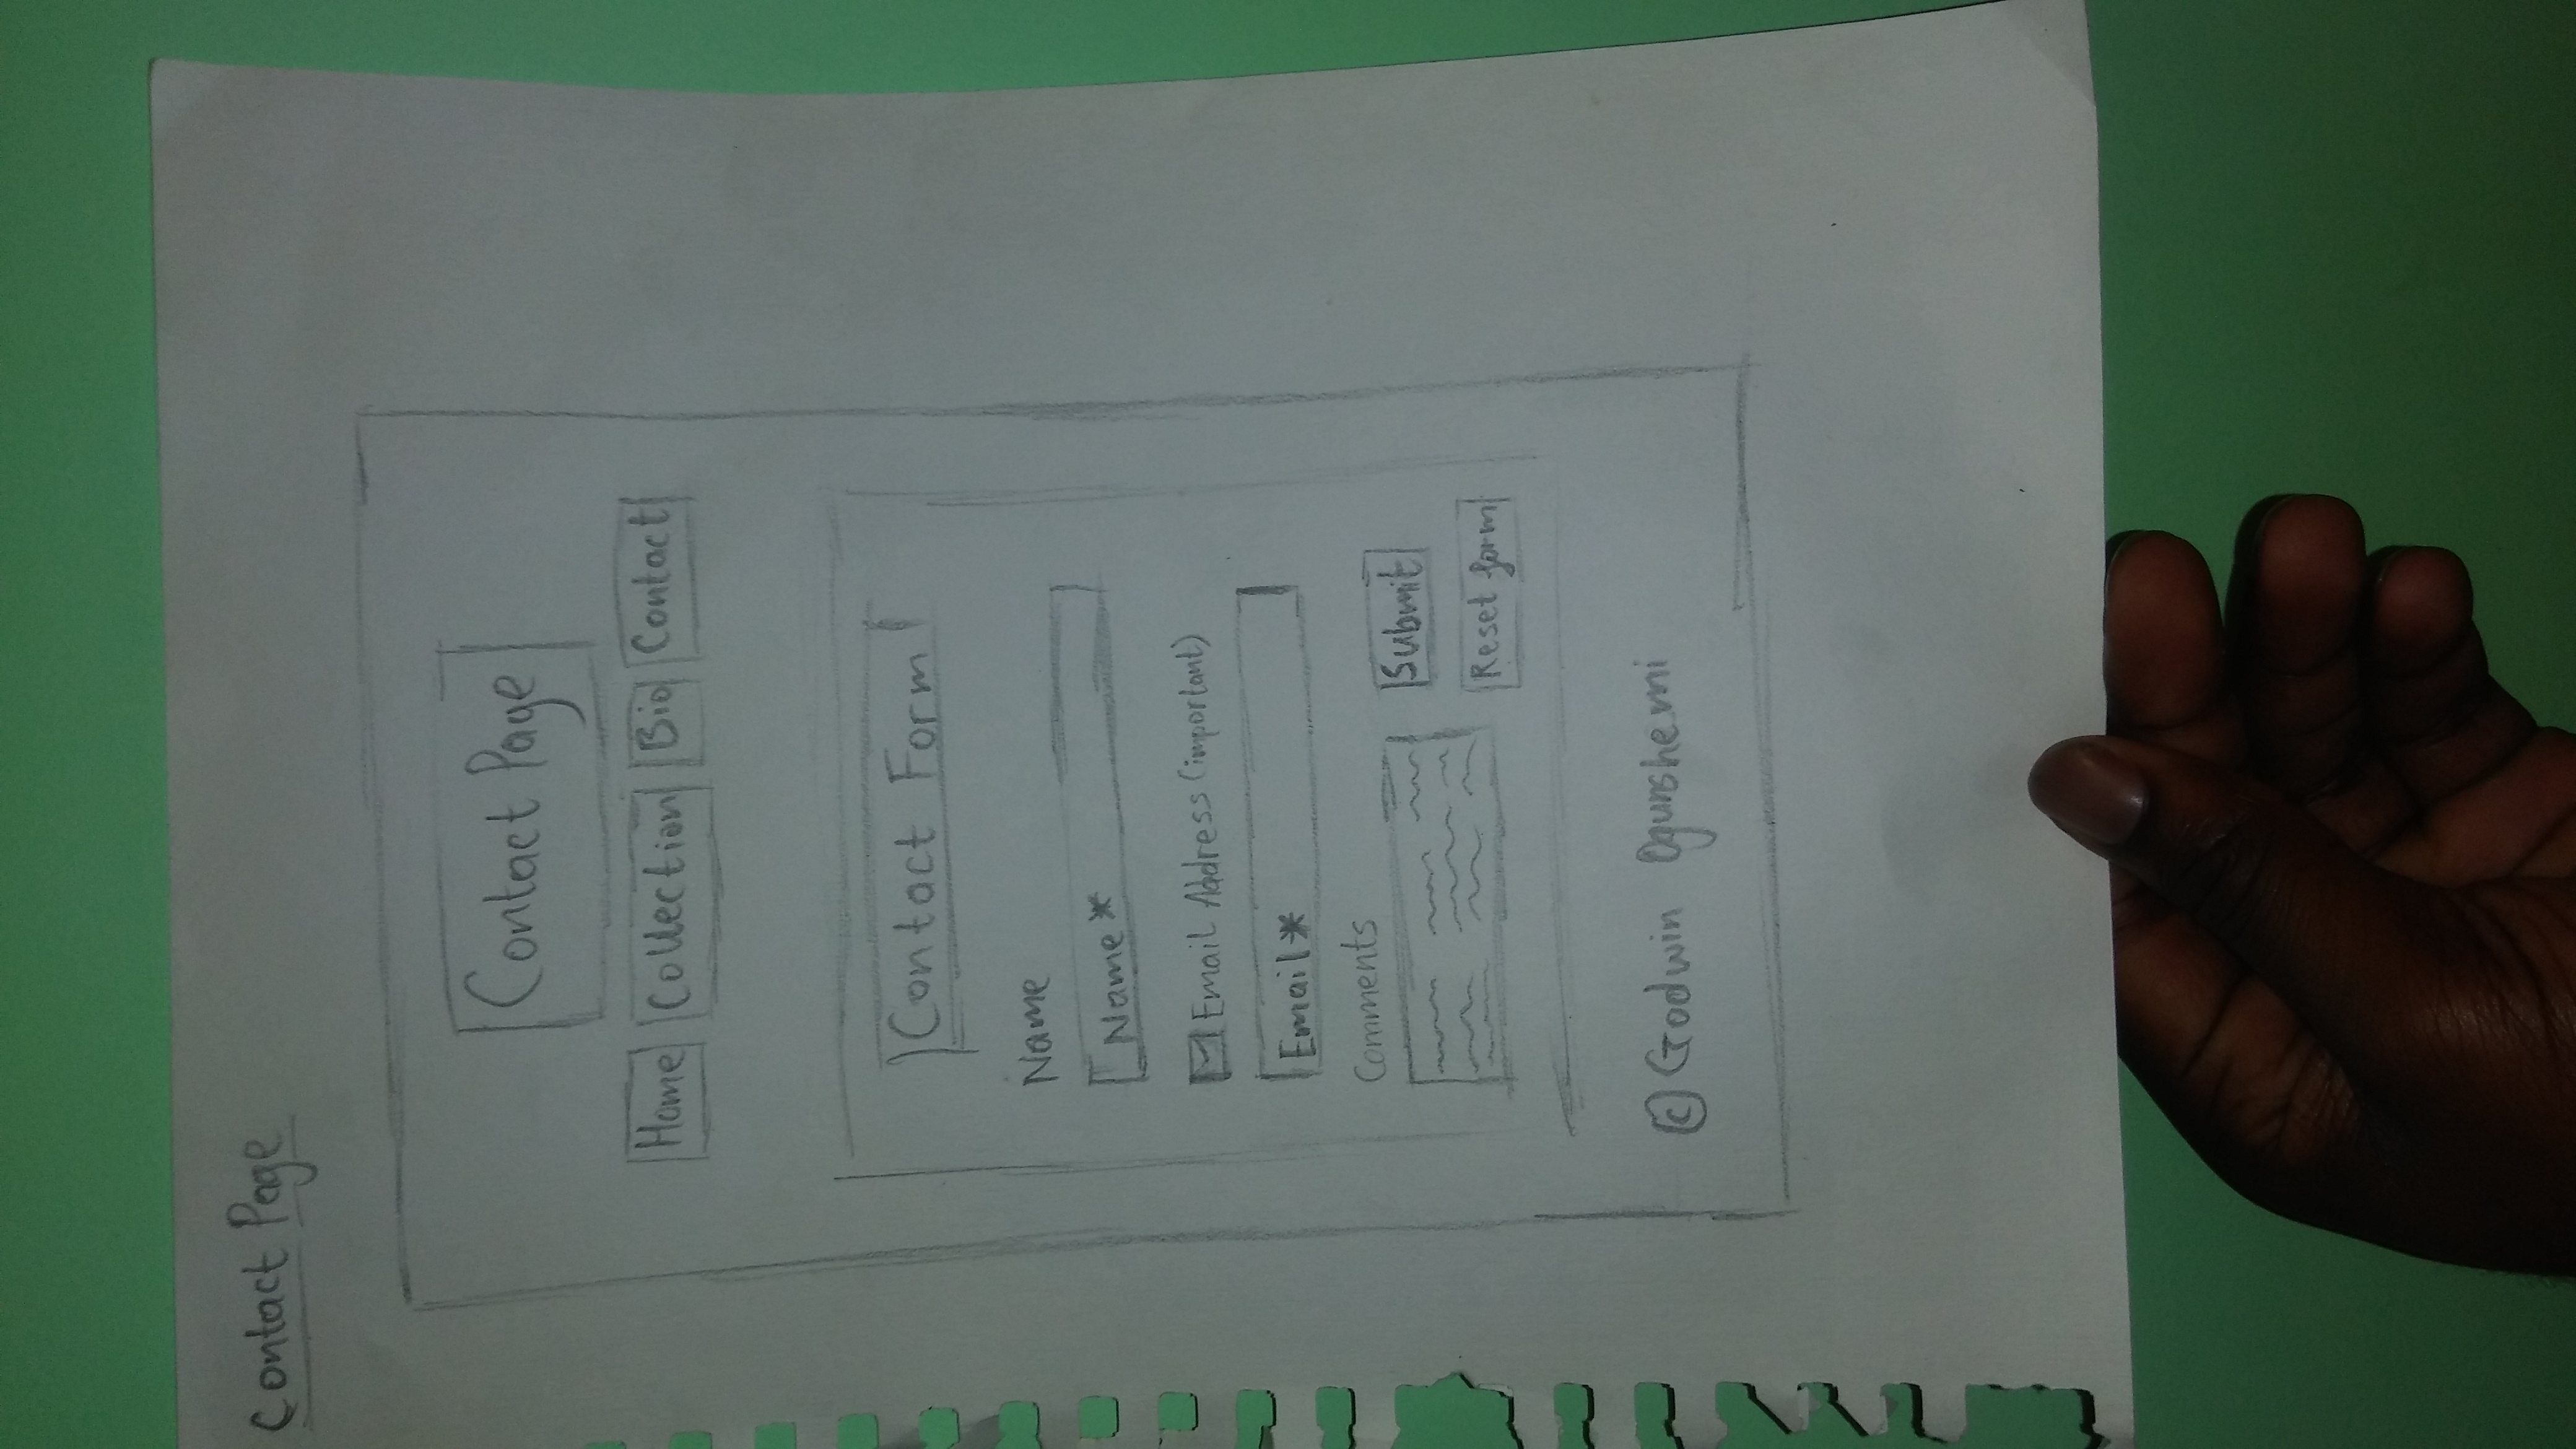 Contact Page
Contact Page
Home Collection Bio Contact
Contact Form
Name
Name*
Email Address (important)
Email*
Comments
Submit
Reset form
© Godwin Ogunshemi